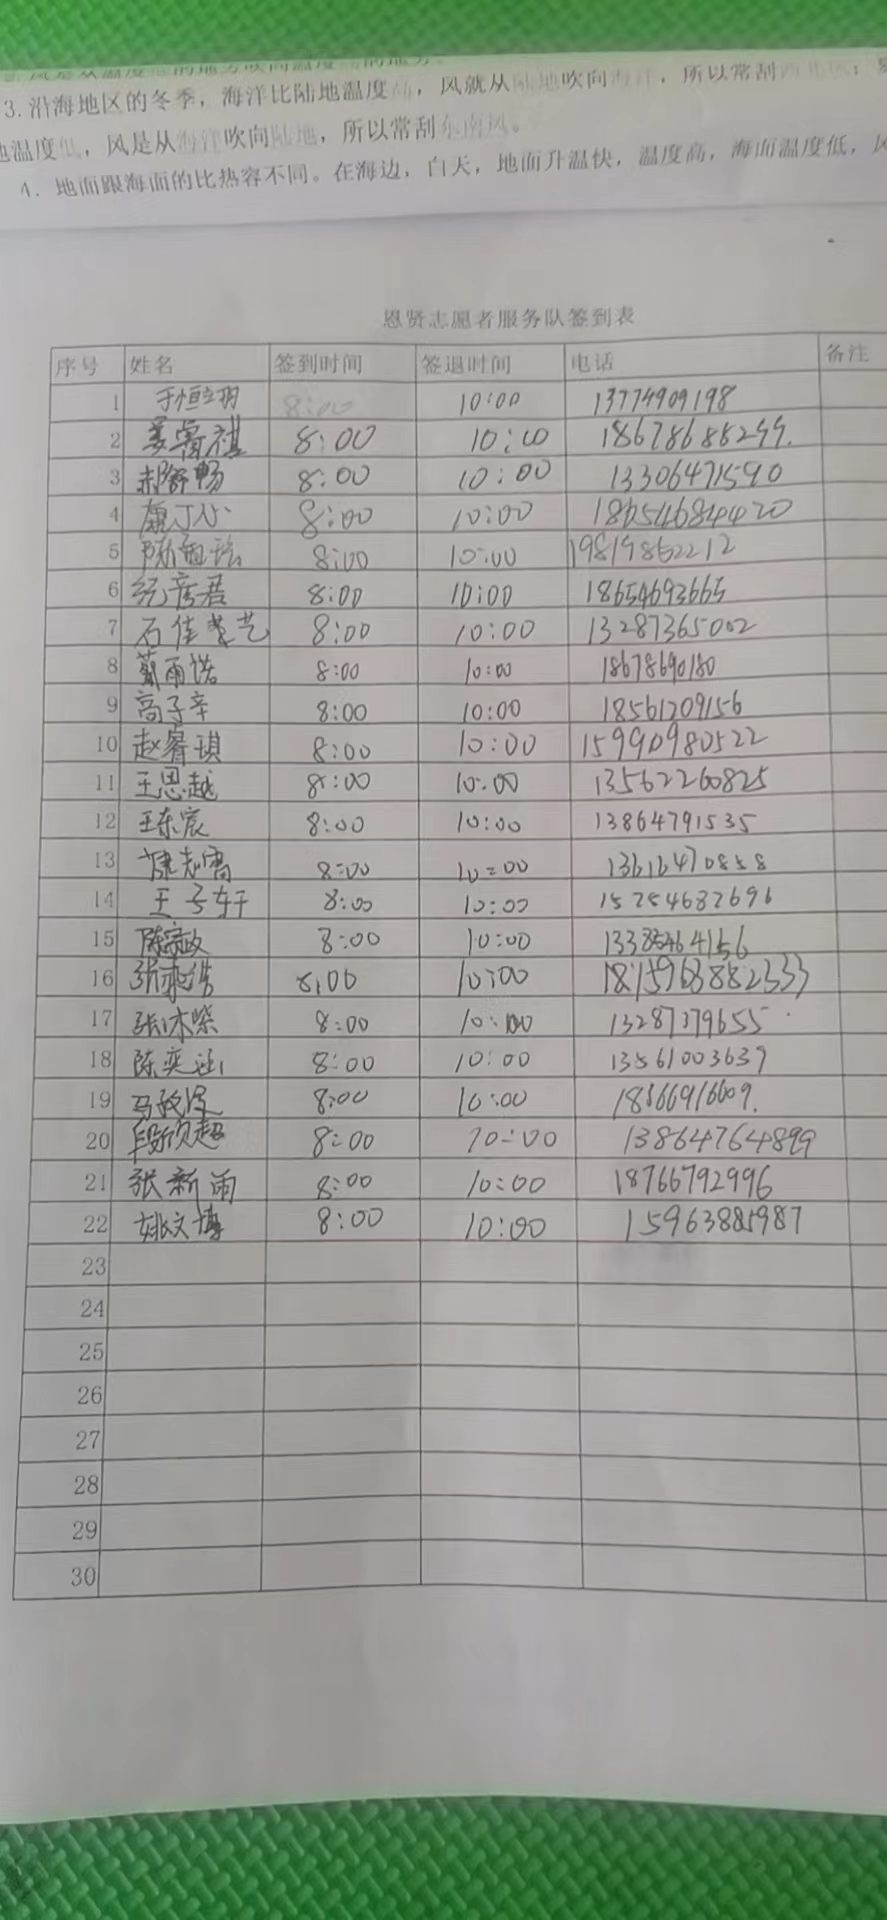 3.沿海地区的冬季，海洋比陆地温度高，风就从陆地吹向海洋，所以常刮
地温度低，风是从海洋吹向陆地，所以常刮东南风。
4．地面跟海面的比热容不同。在海边，白天，地面升温快，温度高，海面温度低，风
恩贤志愿者服务队签到表
序号 姓名 签到时间 签退时间 电话 备注
1 于恒翊 8:00 10:00 13774909198
2 姜睿祺 8:00 10:00 18678688299.
3 郝舒畅 8:00 10:00 13306471590
4 8:00 10:00 18654684420
5 8:00 10:00 19819862212
6 纪彦君 8:00 10:00 18654693665
7 石佳艺 8:00 10:00 13287365002
8 雨诺 8:00 10:00 18678690180
9 高子辛 8:00 10:00 18561209156
10 赵睿琪 8:00 10:00 15990980522
11 王思越 8:00 10:00 13562260825
12 王东宸 8:00 10:00 13864791535
13 8:00 10:00 13616470858
14 王子轩 8:00 10:00 15254682696
15 8:00 10:00
16 8:00 10:00
17 张沐紫 8:00 10:00 13287379655
18 陈奕 8:00 10:00 13561003639
19 8:00 10:00 18366916609.
20 段欣超 8:00 10:00 13864764899
21 张新雨 8:00 10:00 18766792996
22 姚文博 8:00 10:00 15963885987
23
24
25
26
27
28
29
30